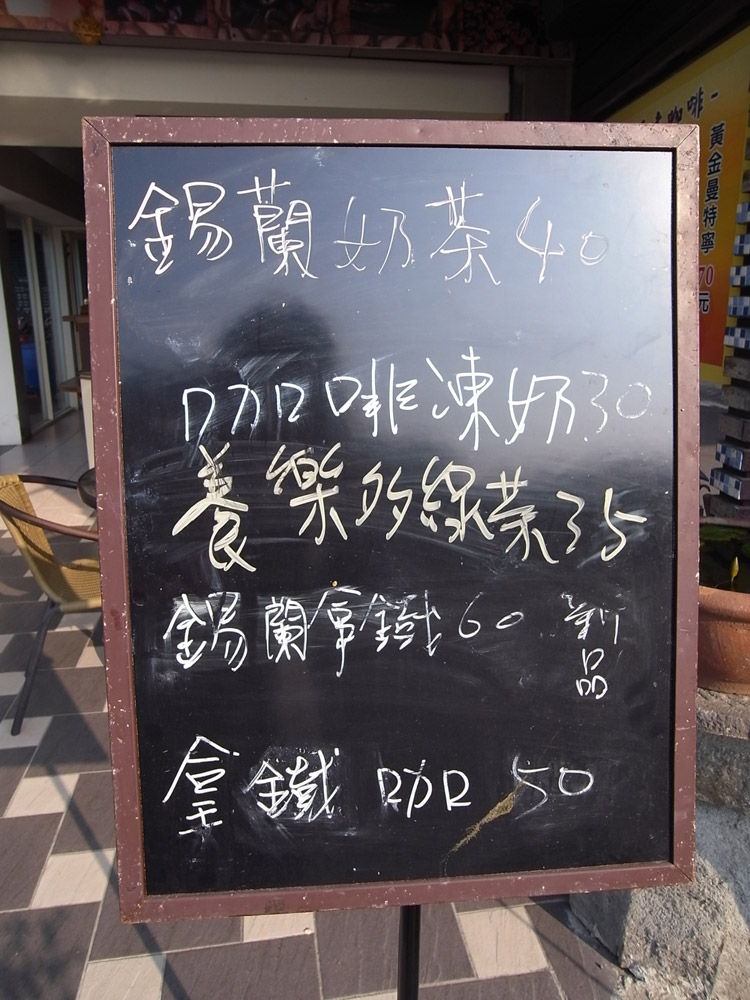 錫蘭奶茶 40
咖啡凍奶 30
養樂多綠茶 35
錫蘭拿鐵 60 新品
拿鐵 咖 50
咖啡-
黃金曼特寧
70元